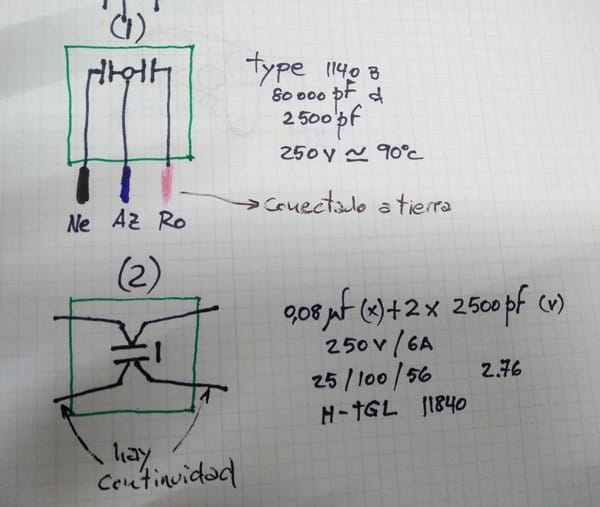 (1)
type 1140 B
80000 pF d
2500 pf
250 V ≃ 90°c
Ne Az Ro
conectado a tierra
(2)
0,08 µf (x) + 2 x 2500 pf (v)
250 V / 6A
25 / 100 / 56 2.76
H-tGL 11840
hay
continuidad